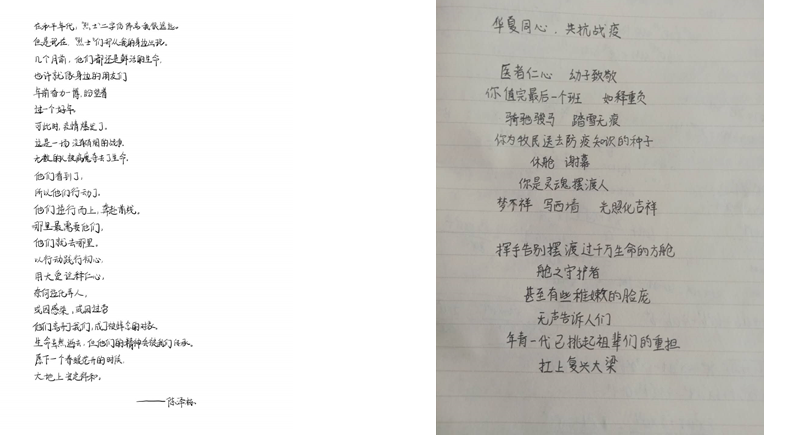 在和平年代，"烈士"二字仿佛离我很遥远。
但是现在，"烈士"们却从我的身边出现。
几个月前，他们都还是鲜活的生命，
也许就像身边的朋友们
年前奋力一搏，盼望着
过一个好年。
可此时，疫情爆发了。
这是一场没有硝烟的战争
无数的人被病魔夺去了生命。
他们看到了，
所以他们行动了。
他们逆行而上，奔赴前线。
哪里最需要他们，
他们就去哪里。
以行动践行初心，
用大爱诠释仁心。
奈何造化弄人，
或因感染，或因过劳
他们离开了我们，成了使命的代表。
生命虽然逝去，但他们的精神会使我们传承。
愿下一个春暖花开的时候，
大地上皆是祥和。
华夏同心，共抗战疫
医者仁心 幼子致敬
你值完最后一个班 如释重负
骑驰骏马 踏雪无痕
你为牧民送去防疫知识的种子
休舱 谢幕
你是灵魂摆渡人
梦不祥 写西墙 光照化吉祥
挥手告别摆渡过千万生命的方舱
舱之守护者
甚至有些稚嫩的脸庞
无声告诉人们
年青一代已挑起祖辈们的重担
扛上复兴大梁